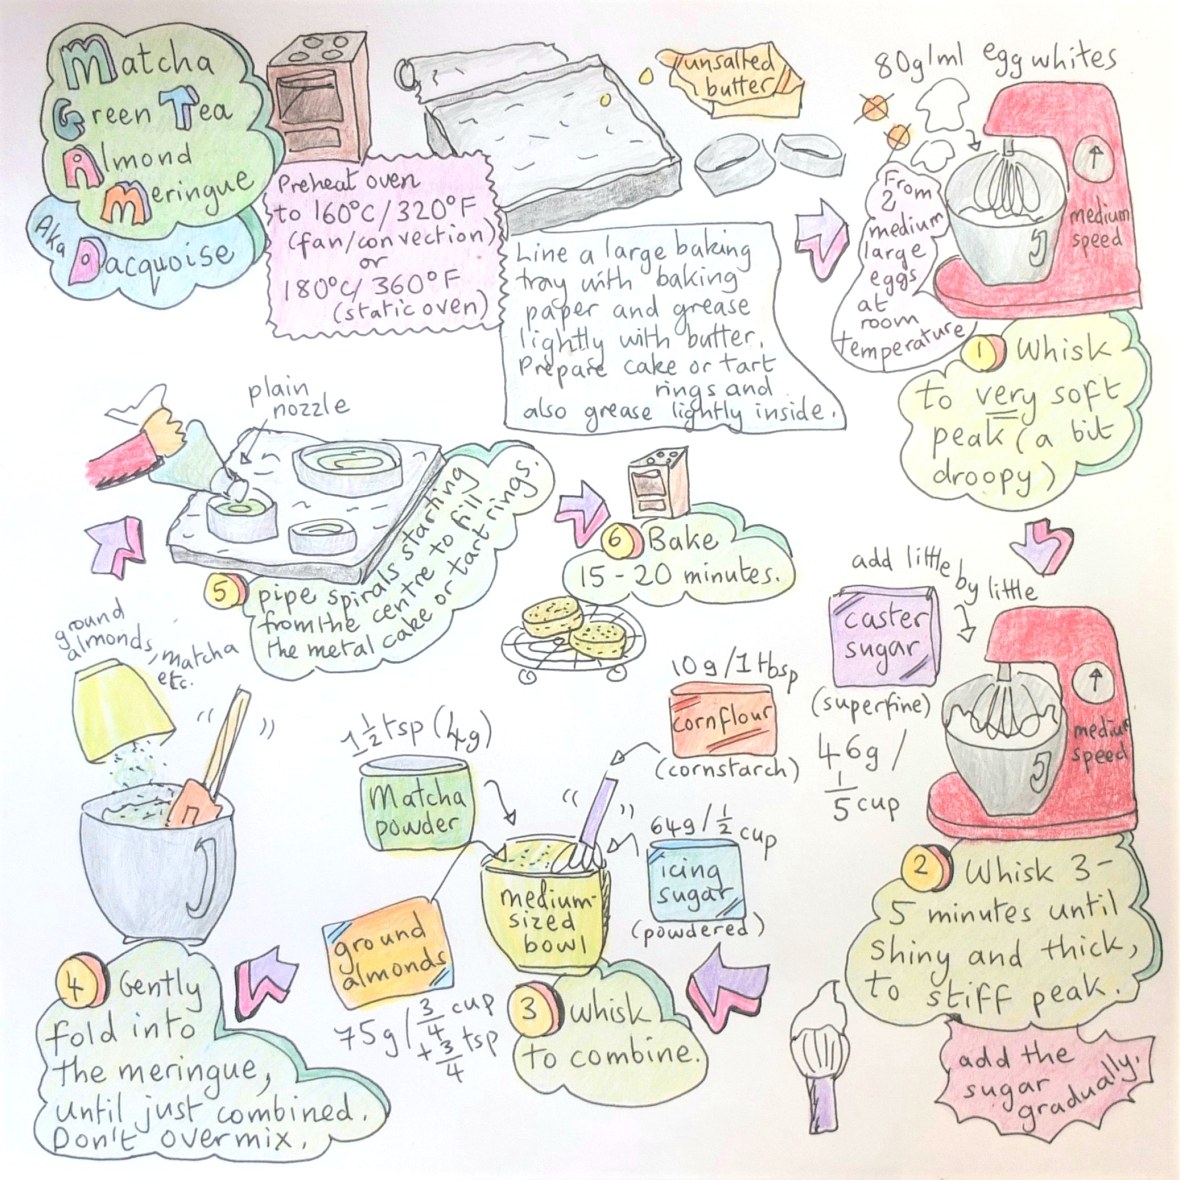 Matcha
Green Tea
Almond
Meringue
Aka
Dacquoise
Preheat oven
to 160°C/320°F
(fan/convection)
or
180°C/360°F
(static oven)
unsalted
butter
Line a large baking
tray with baking
paper and grease
lightly with butter.
Prepare cake or tart
rings and
also grease lightly inside.
80g/ml egg whites
From
2
medium
large
eggs
at
room
temperature
medium
speed
1 Whisk
to very soft
peak (a bit
droopy)
add little
by little
caster
sugar
(superfine)
46g/
1/5 cup
medium
speed
2 Whisk 3-
5 minutes until
shiny and thick,
to stiff peak.
add the
sugar
gradually.
10g/1 tbsp
cornflour
(cornstarch)
64g/1/2 cup
icing
sugar
(powdered)
1 1/2 tsp (4g)
Matcha
powder
medium-
sized
bowl
ground
almonds
75g/3/4 cup
+ 3/4 tsp
3 Whisk
to combine.
ground
almonds, matcha
etc.
4 Gently
fold into
the meringue,
until just combined.
Don't overmix.
plain
nozzle
5 pipe spirals starting
from the centre to fill
the metal cake or tart rings.
6 Bake
15-20 minutes.